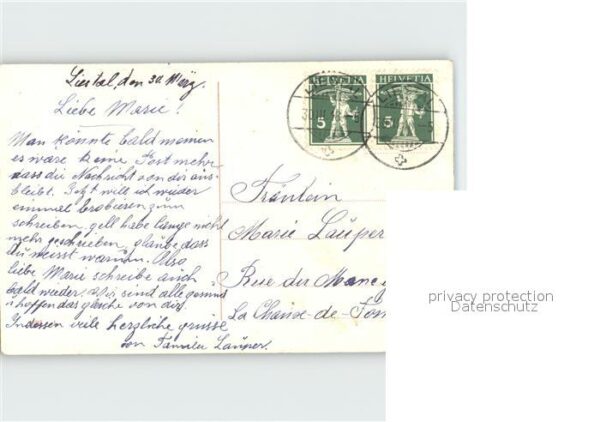 Liestal, den 30. März.
Liebe Marie!
Man könnte bald meinen
es wäre keine Post mehr
dass die Nachricht von dir aus-
bleibt. Jetzt will ich wieder
einmal brobieren zum
schreiben, gell habe lange nicht
mehr geschrieben, glaube dass
du weisst warum. Also
liebe Marie schreibe auch
bald wieder. Wir sind alle gesund
u hoffen das gleiche von dir.
Indessen viele herzliche grüsse
von Familie Lauper.
HELVETIA
5
HELVETIA
5
Fräulein
Marie Lauper
Rue du Maneg
La Chaux-de-Fon
privacy protection
Datenschutz